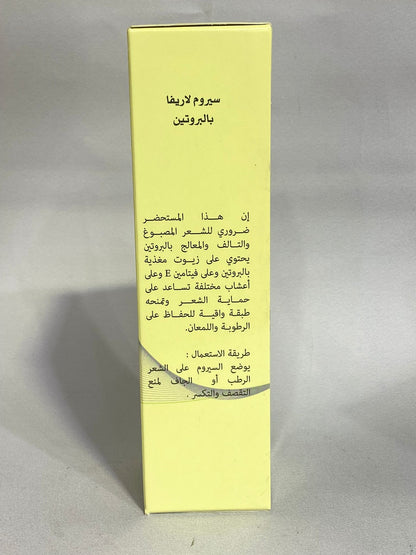 سيروم لاريفا
بالبروتين
إن هذا المستحضر
ضروري للشعر المصبوغ
والتالف والمعالج بالبروتين
يحتوي على زيوت مغذية
بالبروتين وعلى فيتامين E وعلى
أعشاب مختلفة تساعد على
حماية الشعر وتمنحه
طبقة واقية للحفاظ على
الرطوبة واللمعان.
طريقة الاستعمال :
يوضع السيروم على الشعر
الرطب أو الجاف لمنع
التقصف والتكسر .